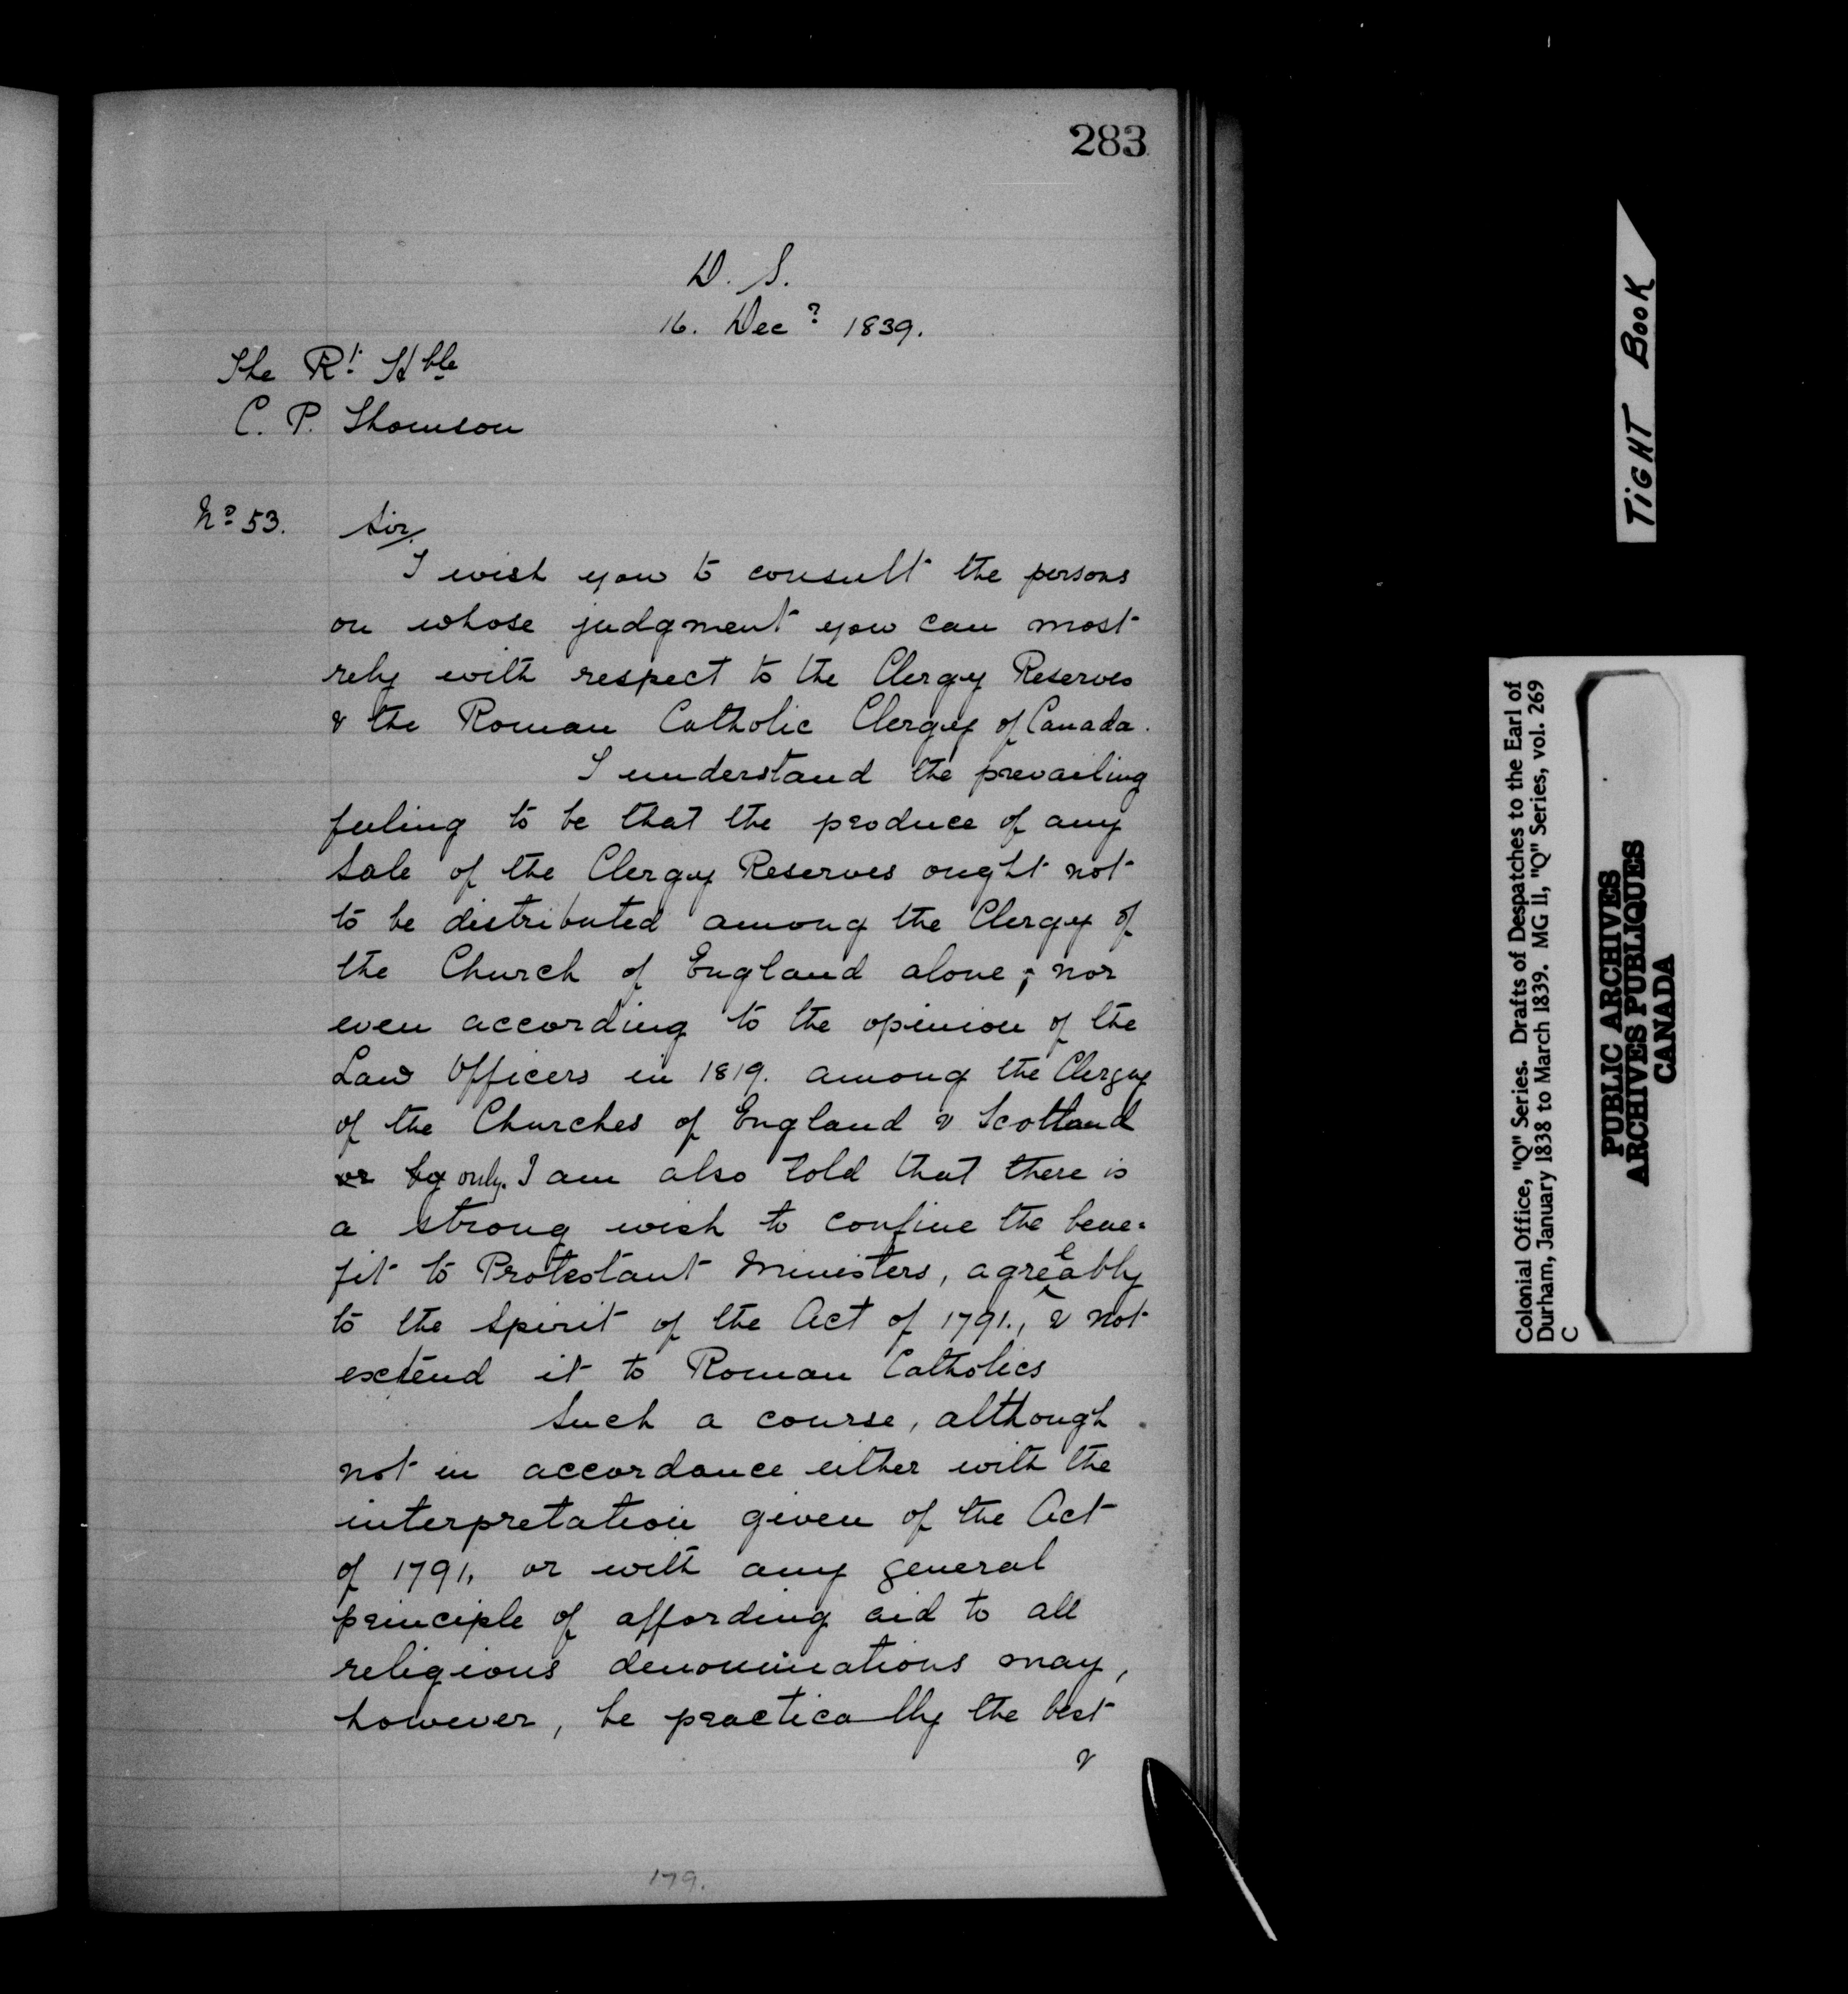 283
D. S.
16. Decr 1839.
The Rt Hble
C. P. Thomson
No 53. Sir,
I wish you to consult the persons
on whose judgment you can most
rely with respect to the Clergy Reserves
& the Roman Catholic Clergy of Canada.
I understand the prevailing
feeling to be that the produce of any
sale of the Clergy Reserves ought not
to be distributed among the Clergy of
the Church of England alone; nor
even according to the opinion of the
Law Officers in 1819. among the Clergy
of the Churches of England & Scotland
only. I am also told that there is
a strong wish to confine the bene=
fit to Protestant Ministers, agreeably
to the spirit of the Act of 1791., & not
extend it to Roman Catholics
Such a course, although
not in accordance either with the
interpretation given of the Act
of 1791, or with any general
principle of affording aid to all
religious denominations may,
however, be practically the best
&
179.
TIGHT BOOK
Colonial Office, "Q" Series. Drafts of Despatches to the Earl of
Durham, January 1838 to March 1839. MG 11, "Q" Series, vol. 269
C
PUBLIC ARCHIVES
ARCHIVES PUBLIQUES
CANADA